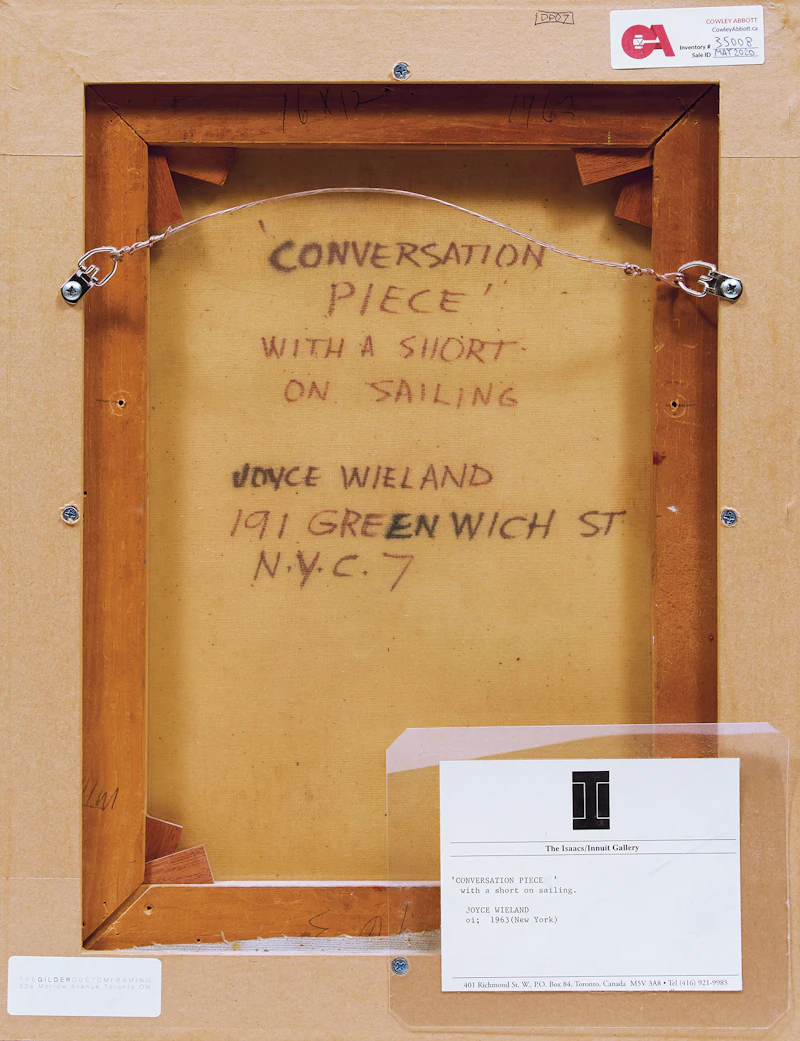 DP07
CA
COWLEY ABBOTT
CowleyAbbott.ca
Inventory # 35008
Sale ID MAY2020
16 X 12 1963
'CONVERSATION
PIECE'
WITH A SHORT
ON SAILING
JOYCE WIELAND
191 GREENWICH ST
N.Y.C. 7
The Isaacs/Innuit Gallery
'CONVERSATION PIECE '
with a short on sailing.
JOYCE WIELAND
oi; 1963(New York)
401 Richmond St. W., P.O. Box 84, Toronto, Canada M5V 3A8 • Tel (416) 921-9985
THEGILDERCUSTOMFRAMING
Morrow Avenue Toronto ON